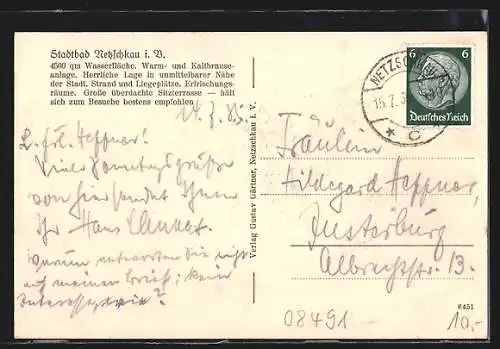 Stadtbad Netzschkau i. V.
4500 qm Wasserfläche. Warm- und Kaltbrause-
anlage. Herrliche Lage in unmittelbarer Nähe
der Stadt. Strand und Liegeplätze. Erfrischungs-
räume. Große überdachte Sitzterrasse — hält
sich zum Besuche bestens empfohlen
14.7.35.
L. Frl. Heffner!
Viele Sonntagsgrüße
von hier sendet Ihnen
Ihr Hans
Warum antworten Sie nicht
auf meinen Brief; kein
Interesse, wie?
Verlag Gustav Gärtner, Netzschkau i. V.
NETZSCHKAU
15.7.
* c *
6 6
Deutsches Reich
Fräulein
Hildegard Heffner,
Insterburg
Albrechtstr. 13.
6451
08491
10,-